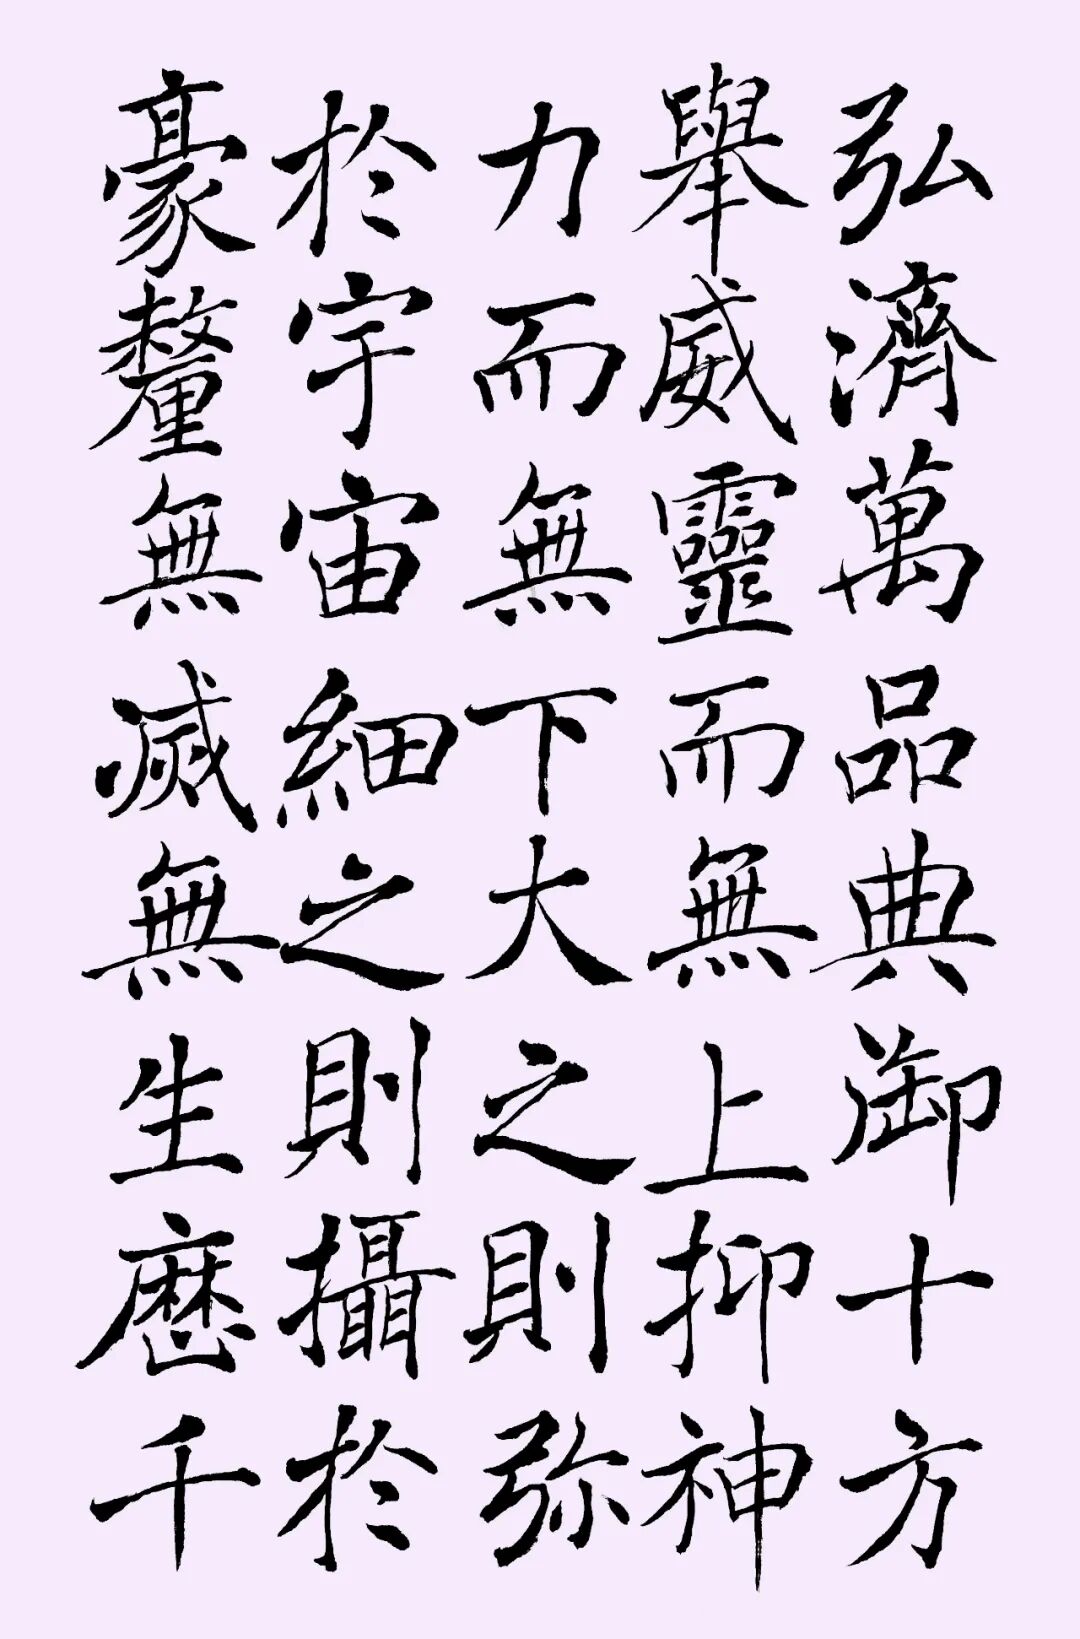 弘濟萬品典御十方
舉威靈而無上抑神
力而無下大之則弥
於宇宙細之則攝於
豪釐無滅無生歷千